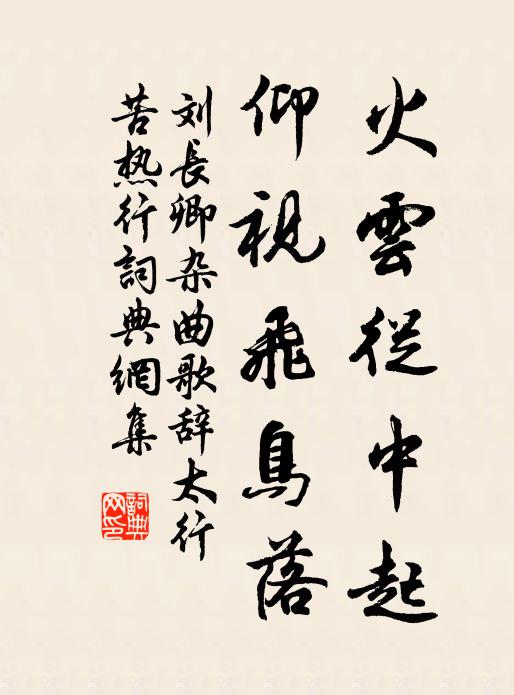 火雲從中起
仰視飛鳥落
刘長卿杂曲歌辞太行
苦热行詞典網集
詞典
网印